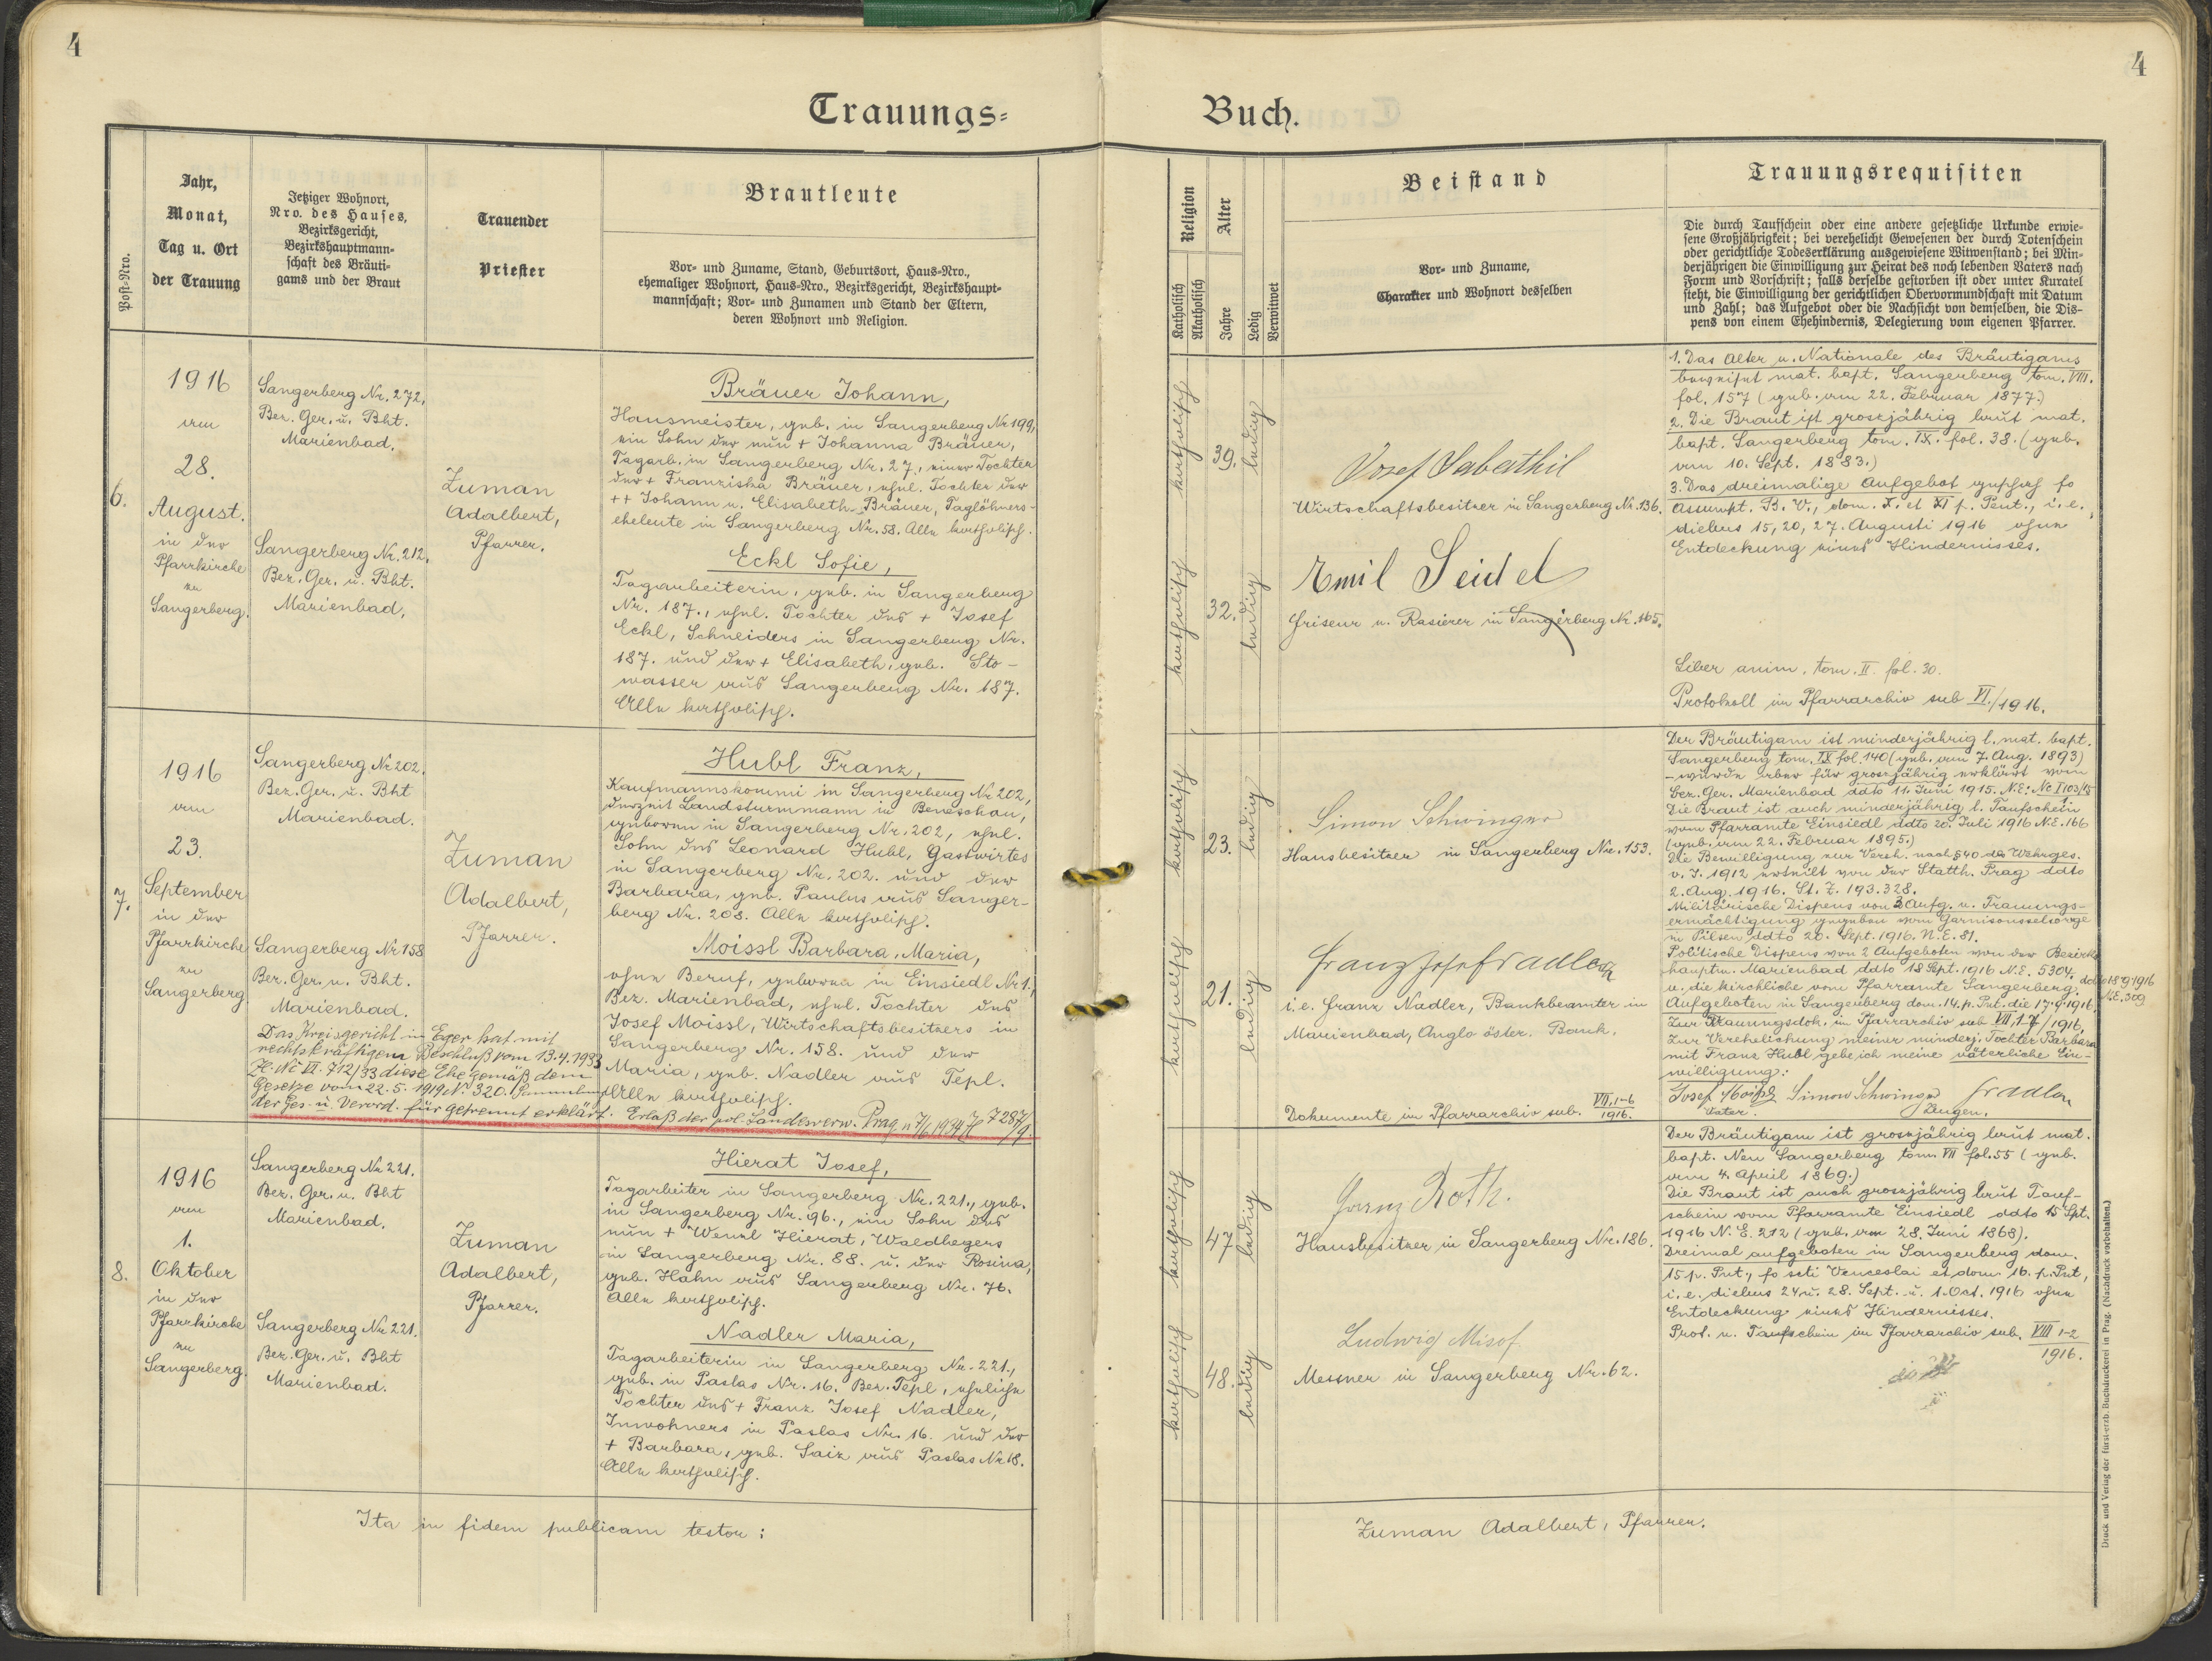 4
4
Trauungs=
Buch.
Post-Nro.
Jahr,
Monat,
Tag u. Ort
der Trauung
Jetziger Wohnort,
Nro. des Hauses,
Bezirksgericht,
Bezirkshauptmann=
schaft des Bräuti=
gams und der Braut
Trauender
Priester
Brautleute
Vor= und Zuname, Stand, Geburtsort, Haus=Nro.,
ehemaliger Wohnort, Haus=Nro., Bezirksgericht, Bezirkshaupt=
mannschaft; Vor= und Zunamen und Stand der Eltern,
deren Wohnort und Religion.
Religion
Katholisch
Akatholisch
Alter
Jahre
Ledig
Verwitwet
Beistand
Vor= und Zuname,
Charakter und Wohnort desselben
Trauungsrequisiten
Die durch Taufschein oder eine andere gesetzliche Urkunde erwie=
sene Großjährigkeit; bei verehelicht Gewesenen der durch Totenschein
oder gerichtliche Todeserklärung ausgewiesene Witwenstand; bei Min=
derjährigen die Einwilligung zur Heirat des noch lebenden Vaters nach
Form und Vorschrift; falls derselbe gestorben ist oder unter Kuratel
steht, die Einwilligung der gerichtlichen Obervormundschaft mit Datum
und Zahl; das Aufgebot oder die Nachsicht von demselben, die Dis=
pens von einem Ehehindernis, Delegierung vom eigenen Pfarrer.
6.
1916
am
28.
August.
in der
Pfarrkirche
zu
Sangerberg.
Sangerberg Nr. 272,
Bez. Ger. u. Bht.
Marienbad.
Sangerberg Nr. 212,
Bez. Ger. u. Bht.
Marienbad.
Zuman
Adalbert,
Pfarrer.
Bräuer Johann,
Hausmeister, geb. in Sangerberg Nr 199,
ein Sohn der nun + Johanna Bräuer,
Tagarb. in Sangerberg Nr. 27, einer Tochter
der + Franziska Bräuer, ehel. Tochter der
++ Johann u. Elisabeth Bräuer, Taglöhners-
eheleute in Sangerberg Nr. 58. Alle katholisch.
Eckl Sofie,
Tagarbeiterin, geb. in Sangerberg
Nr. 187., ehel. Tochter des + Josef
Eckl, Schneiders in Sangerberg Nr.
187. und der + Elisabeth, geb. Sto-
wasser aus Sangerberg Nr. 187.
Alle katholisch.
katholisch
39.
ledig
katholisch
32.
ledig
Josef Sabathil
Wirtschaftsbesitzer in Sangerberg Nr. 136.
Emil Seidel
Friseur u. Rasierer in Sangerberg Nr. 165.
1. Das Alter u. Nationale des Bräutigams
beweiset mat. bapt. Sangerberg tom. VIII.
fol. 157 (geb. am 22. Februar 1877.)
2. Die Braut ist groszjährig laut mat.
bapt. Sangerberg tom. IX. fol. 38. (geb.
am 10. Sept. 1883.)
3. Das dreimalige Aufgebot geschah fo
Assumpt. B. V., dom. X. et XI p. Pent., i. e.
diebus 15, 20, 27. Augusti 1916 ohne
Entdeckung eines Hindernisses.
Liber anim. tom. II fol. 30.
Protokoll im Pfarrarchiv sub VI./1916.
7.
1916
am
23.
September
in der
Pfarrkirche
zu
Sangerberg
Sangerberg Nr 202.
Bez. Ger. u. Bht
Marienbad.
Sangerberg Nr 158
Bez. Ger. u. Bht.
Marienbad.
Zuman
Adalbert,
Pfarrer.
Hubl Franz,
Kaufmannskommi in Sangerberg Nr 202,
derzeit Landsturmmann in Beneschau,
geboren in Sangerberg Nr. 202, ehel.
Sohn des Leonard Hubl, Gastwirtes
in Sangerberg Nr. 202. und der
Barbara, geb. Paulus aus Sanger-
berg Nr. 208. Alle katholisch.
Moissl Barbara, Maria,
ohne Beruf, geboren in Einsiedl Nr 1.,
Bez. Marienbad, ehel. Tochter des
Josef Moissl, Wirtschaftsbesitzers in
Sangerberg Nr. 158. und der
Maria, geb. Nadler aus Tepl.
Alle katholisch.
Das Kreisgericht in Eger hat mit
rechtskräftigem Beschluß vom 13.4.1933
Zl. Nc VI. 712/33 diese Ehe gemäß dem
Gesetze vom 22. 5. 1919 N. 320. Sammlung
der Ges. u. Verord. für getrennt erklärt. Erlaß der pol. Landesverw. Prag
katholisch
23.
ledig
katholisch
21.
ledig
Simon Schwinger
Hausbesitzer in Sangerberg Nr. 153.
Franz Josef Nadler
i.e. Franz Nadler, Bankbeamter in
Marienbad, Anglo öster. Bank.
Dokumente im Pfarrarchiv sub. VII, 1-6/1916.
Der Bräutigam ist minderjährig l. mat. bapt.
Sangerberg tom. IX fol. 140 (geb. am 7. Aug. 1893)
- wurde aber für groszjährig erklärt vom
Bez. Ger. Marienbad ddto 11. Juni 1915. N.E.
Die Braut ist auch minderjährig l. Taufschein
vom Pfarramte Einsiedl ddto 20. Juli 1916 N.E. 166
(geb. am 22. Februar 1895.)
Die Bewilligung zur Vereh. nach § 40 des Wehrges.
v. J. 1912 erteilt von der Statth. Prag ddto
2. Aug. 1916. St. Z. 193.328.
Militärische Dispens von 3 Aufg. u. Trauungs-
ermächtigung gegeben vom Garnisonsselsorge
in Pilsen ddto 20. Sept. 1916. N.E. 81.
Politische Dispens von 2 Aufgeboten von der Bezirks
hauptm. Marienbad ddto 18 Sept. 1916 N.E. 5304.
u. die kirchliche vom Pfarramte Sangerberg. ddto 18.9.1916 N.E. 309
Aufgeboten in Sangerberg dom. 14. p. Pnt. die 17.9.1916.
Zur Trauungsdok. in Pfarrarchiv sub VII, 1-7/1916.
Zur Verehelichung meiner minderj. Tochter Barbara
mit Franz Hubl gebe ich meine väterliche Ein-
willigung:
Josef Moissl Simon Schwinger Fr Nadler
Vater. Zeugen.
8.
1916
am
1.
Oktober
in der
Pfarrkirche
zu
Sangerberg.
Sangerberg Nr 221.
Bez. Ger. u. Bht
Marienbad.
Sangerberg Nr 221.
Bez. Ger. u. Bht
Marienbad.
Zuman
Adalbert,
Pfarrer.
Hierat Josef,
Tagarbeiter in Sangerberg Nr. 221., geb.
in Sangerberg Nr. 96., ein Sohn des
nun + Wenzl Hierat, Waldhegers
in Sangerberg Nr. 88. u. der Rosina,
geb. Hahn aus Sangerberg Nr. 76.
Alle katholisch.
Nadler Maria,
Tagarbeiterin in Sangerberg Nr. 221.,
geb. in Paslas Nr. 16. Bez. Tepl, eheliche
Tochter des + Franz Josef Nadler,
Inwohners in Paslas Nr. 16. und der
+ Barbara, geb. Saiz aus Paslas Nr 18.
Alle katholisch.
katholisch
47
ledig
katholisch
48.
ledig
Franz Roth.
Hausbesitzer in Sangerberg Nr. 186.
Ludwig Misof
Messner in Sangerberg Nr. 62.
Der Bräutigam ist groszjährig laut mat.
bapt. Neu Sangerberg tom. VII fol. 55 (geb.
am 4. April 1869.)
Die Braut ist auch groszjährig laut Tauf-
schein vom Pfarramte Einsiedl ddto 15 Spt.
1916 N. E. 212 (geb. am 28. Juni 1868).
Dreimal aufgeboten in Sangerberg dom.
15 p. Pnt., fo scti Venceslai et dom. 16. p. Pnt,
i. e. diebus 24 u. 28. Sept. u. 1. Oct. 1916 ohne
Entdeckung eines Hindernisses.
Prot. u. Taufschein im Pfarrarchiv sub. VIII 1-2/1916.
Ita in fidem publicam testor:
Zuman Adalbert, Pfarrer.
Druck und Verlag der fürst-erzb. Buchdruckerei in Prag. (Nachdruck vorbehalten.)